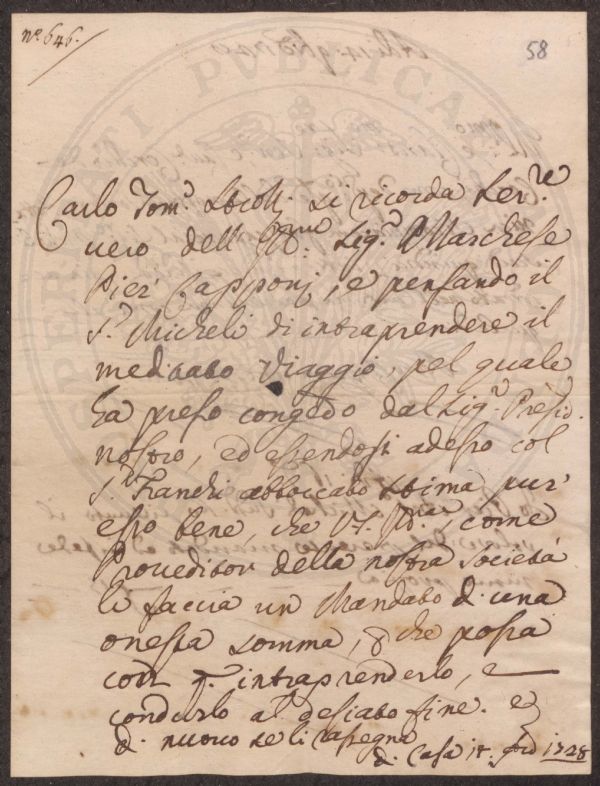 nº. 646.
58
Carlo Tom.º si ricorda Ser.re
vero dell' Ill.mo Sig.r Marchese
Pier Capponj, e pensando il
S.r Micheli di intraprendere il
meditato Viaggio, pel quale
ha preso congedo dal Sig.r Presid.
nostro, ed essendosi adesso col
S.r Franchi abboccato stima pur'
esso bene, che V.S. Ill.ma, come
Proveditor della nostra Società
li faccia un Mandato di una
onesta somma, che possa
con intraprenderlo, e
condurlo al desiato fine. e
di nuovo se li rassegna
di Casa 1728